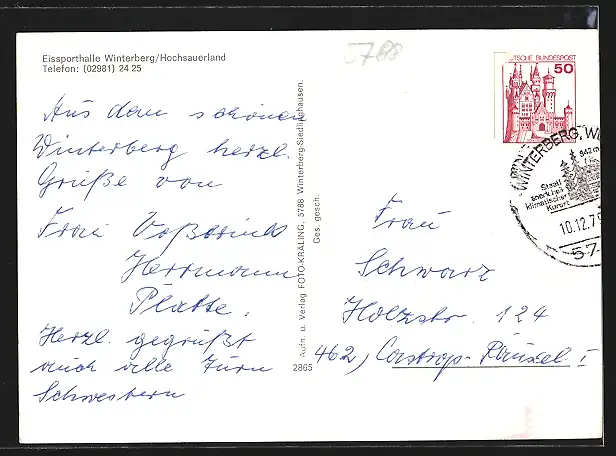 Eissporthalle Winterberg/Hochsauerland
Telefon: (02981) 24 25
5788
Aus dem schönen
Winterberg herzl.
Grüße von
Frau Voßwinkel
Herrmann
Platte.
Herzl. gegrüßt
auch alle Turn
Schwestern
Aufn. u. Verlag FOTO-KRÄLING, 5788 Winterberg-Siedlinghausen.
Ges. gesch.
2865
UTSCHE BUNDESPOST
50
WINTERBERG, W
842 m
Staatl.
anerk. heil
klimatischer
Kurort
10.12.79
57
Frau
Schwarz
Holzstr. 124
462, Castrop-Rauxel I